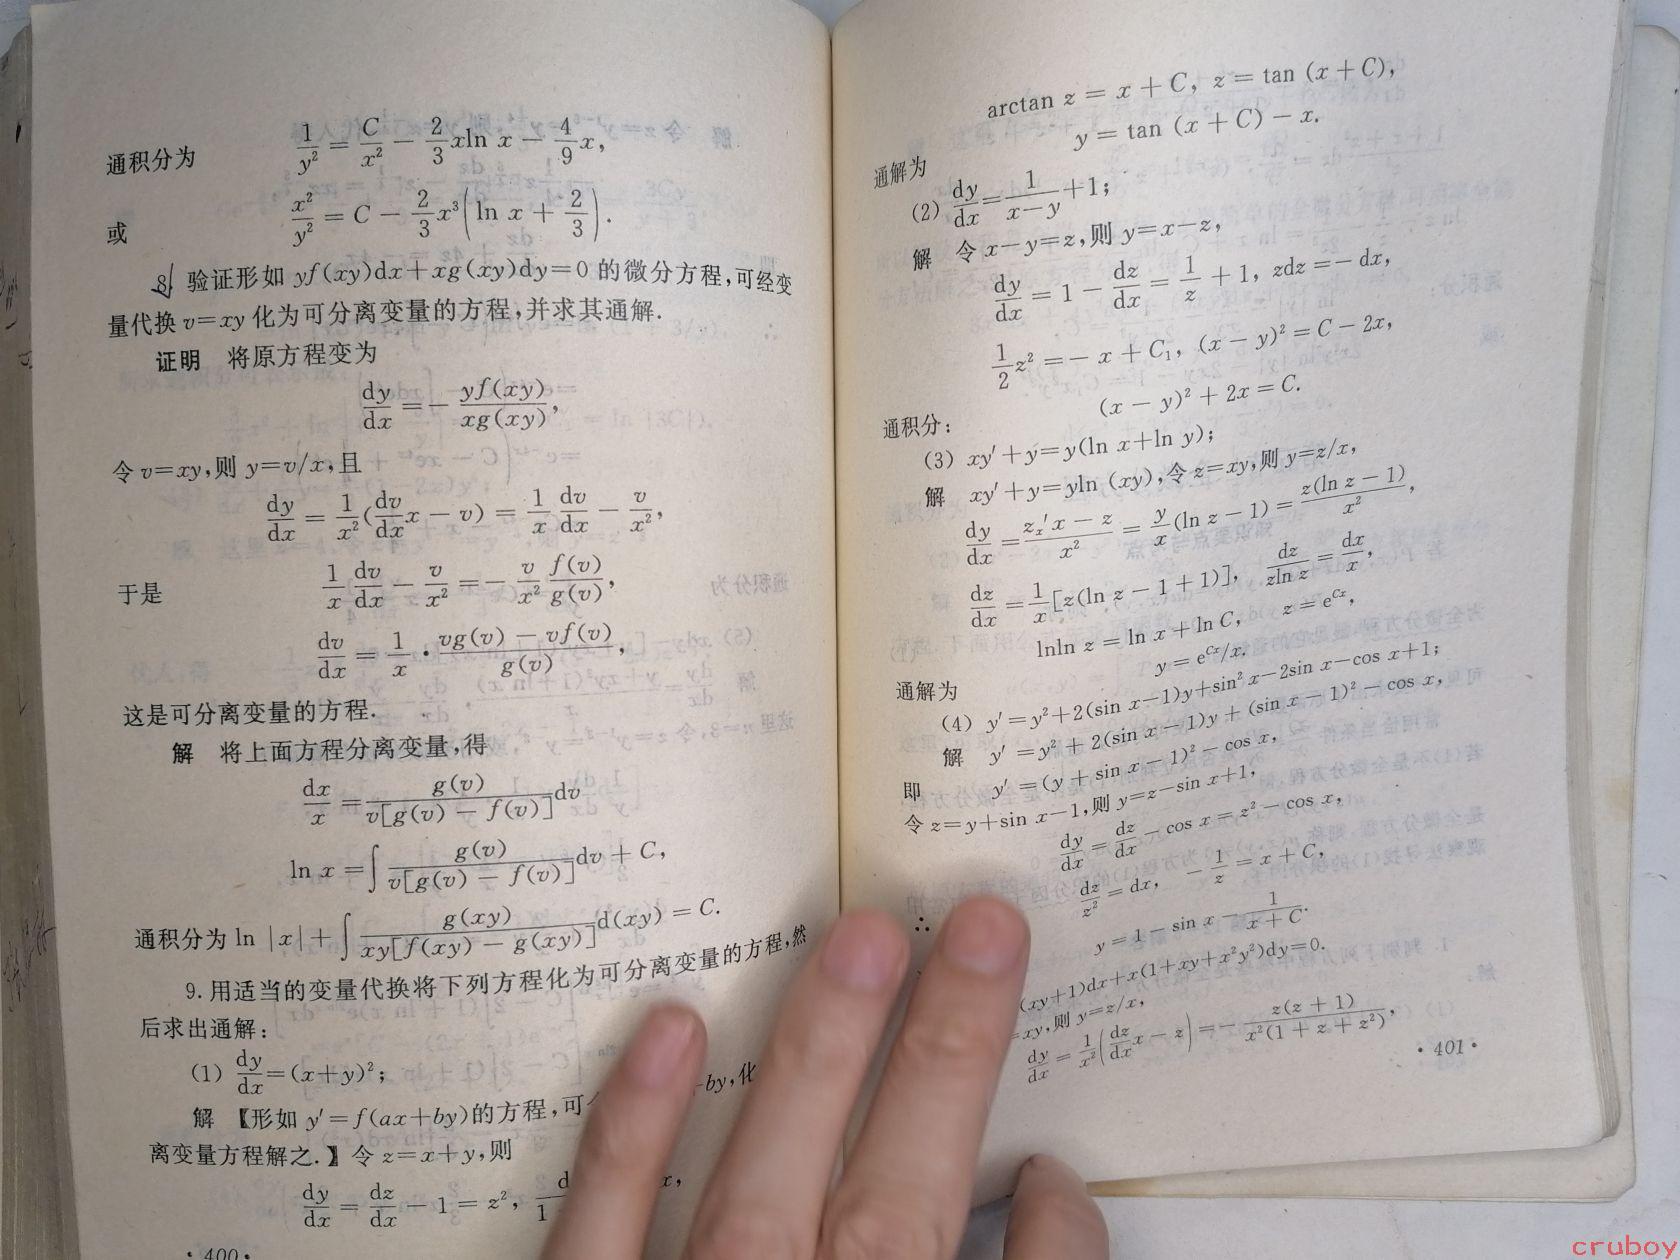 通积分为 1/y² = C/x² − 2/3 xln x − 4/9 x,
或 x²/y² = C − 2/3 x³(ln x + 2/3).
8. 验证形如 yf(xy)dx+xg(xy)dy=0 的微分方程,可经变
量代换 v=xy 化为可分离变量的方程,并求其通解.
证明 将原方程变为
dy/dx = − yf(xy)/xg(xy),
令 v=xy,则 y=v/x,且
dy/dx = 1/x² (dv/dx x − v) = 1/x dv/dx − v/x²,
于是 1/x dv/dx − v/x² = − v/x² f(v)/g(v),
dv/dx = 1/x · (vg(v) − vf(v))/g(v),
这是可分离变量的方程.
解 将上面方程分离变量,得
dx/x = g(v)/(v[g(v) − f(v)]) dv
ln x = ∫ g(v)/(v[g(v) − f(v)]) dv + C,
通积分为 ln |x| + ∫ g(xy)/(xy[f(xy) − g(xy)]) d(xy) = C.
9. 用适当的变量代换将下列方程化为可分离变量的方程,然
后求出通解:
(1) dy/dx = (x+y)²;
解 【形如 y′=f(ax+by)的方程,可 by,化
离变量方程解之.】令 z=x+y,则
dy/dx = dz/dx − 1 = z², x,
· 400 ·
arctan z = x + C, z = tan (x + C),
通解为 y = tan (x + C) − x.
(2) dy/dx = 1/(x−y) + 1;
解 令 x−y=z,则 y=x−z,
dy/dx = 1 − dz/dx = 1/z + 1, zdz = − dx,
1/2 z² = − x + C₁, (x − y)² = C − 2x,
通积分: (x − y)² + 2x = C.
(3) xy′+y=y(ln x+ln y);
解 xy′+y=yln (xy),令 z=xy,则 y=z/x,
dy/dx = (zₓ′x − z)/x² = y/x (ln z − 1) = z(ln z − 1)/x²,
dz/dx = 1/x [z(ln z − 1 + 1)], dz/(zln z) = dx/x,
lnln z = ln x + ln C, z = e^{Cx},
通解为 y = e^{Cx}/x.
(4) y′=y²+2(sin x−1)y+sin² x−2sin x−cos x+1;
解 y′ = y² + 2(sin x − 1)y + (sin x − 1)² − cos x,
即 y′ = (y + sin x − 1)² − cos x,
令 z=y+sin x−1,则 y=z−sin x+1,
dy/dx = dz/dx − cos x = z² − cos x,
dz/z² = dx, − 1/z = x + C,
∴ y = 1 − sin x − 1/(x + C).
(xy+1)dx+x(1+xy+x²y²)dy=0.
=xy,则 y=z/x,
dy/dx = 1/x² (dz/dx x − z) = − z(z + 1)/(x²(1 + z + z²)),
· 401 ·
cruboy